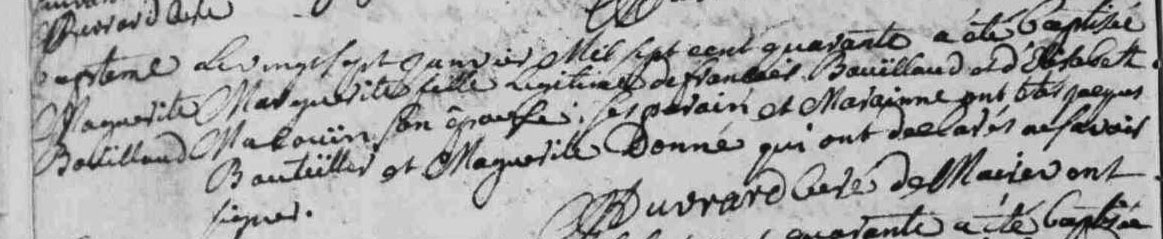 Duvrard curé
Bapteme Le vingt sept Janvier Mil sept cent quarante a été baptisée
Maguerite Marguerite fille Legitime de francois Bouillaud et d'Elisabett
Bouillaud Malouin son épouse, ses parain et Marainne ont étés jacques
Bouteiller et Maguerite Donné qui ont declarés ne savoir
signer.
Duvrard curé de
quarante a été baptisée